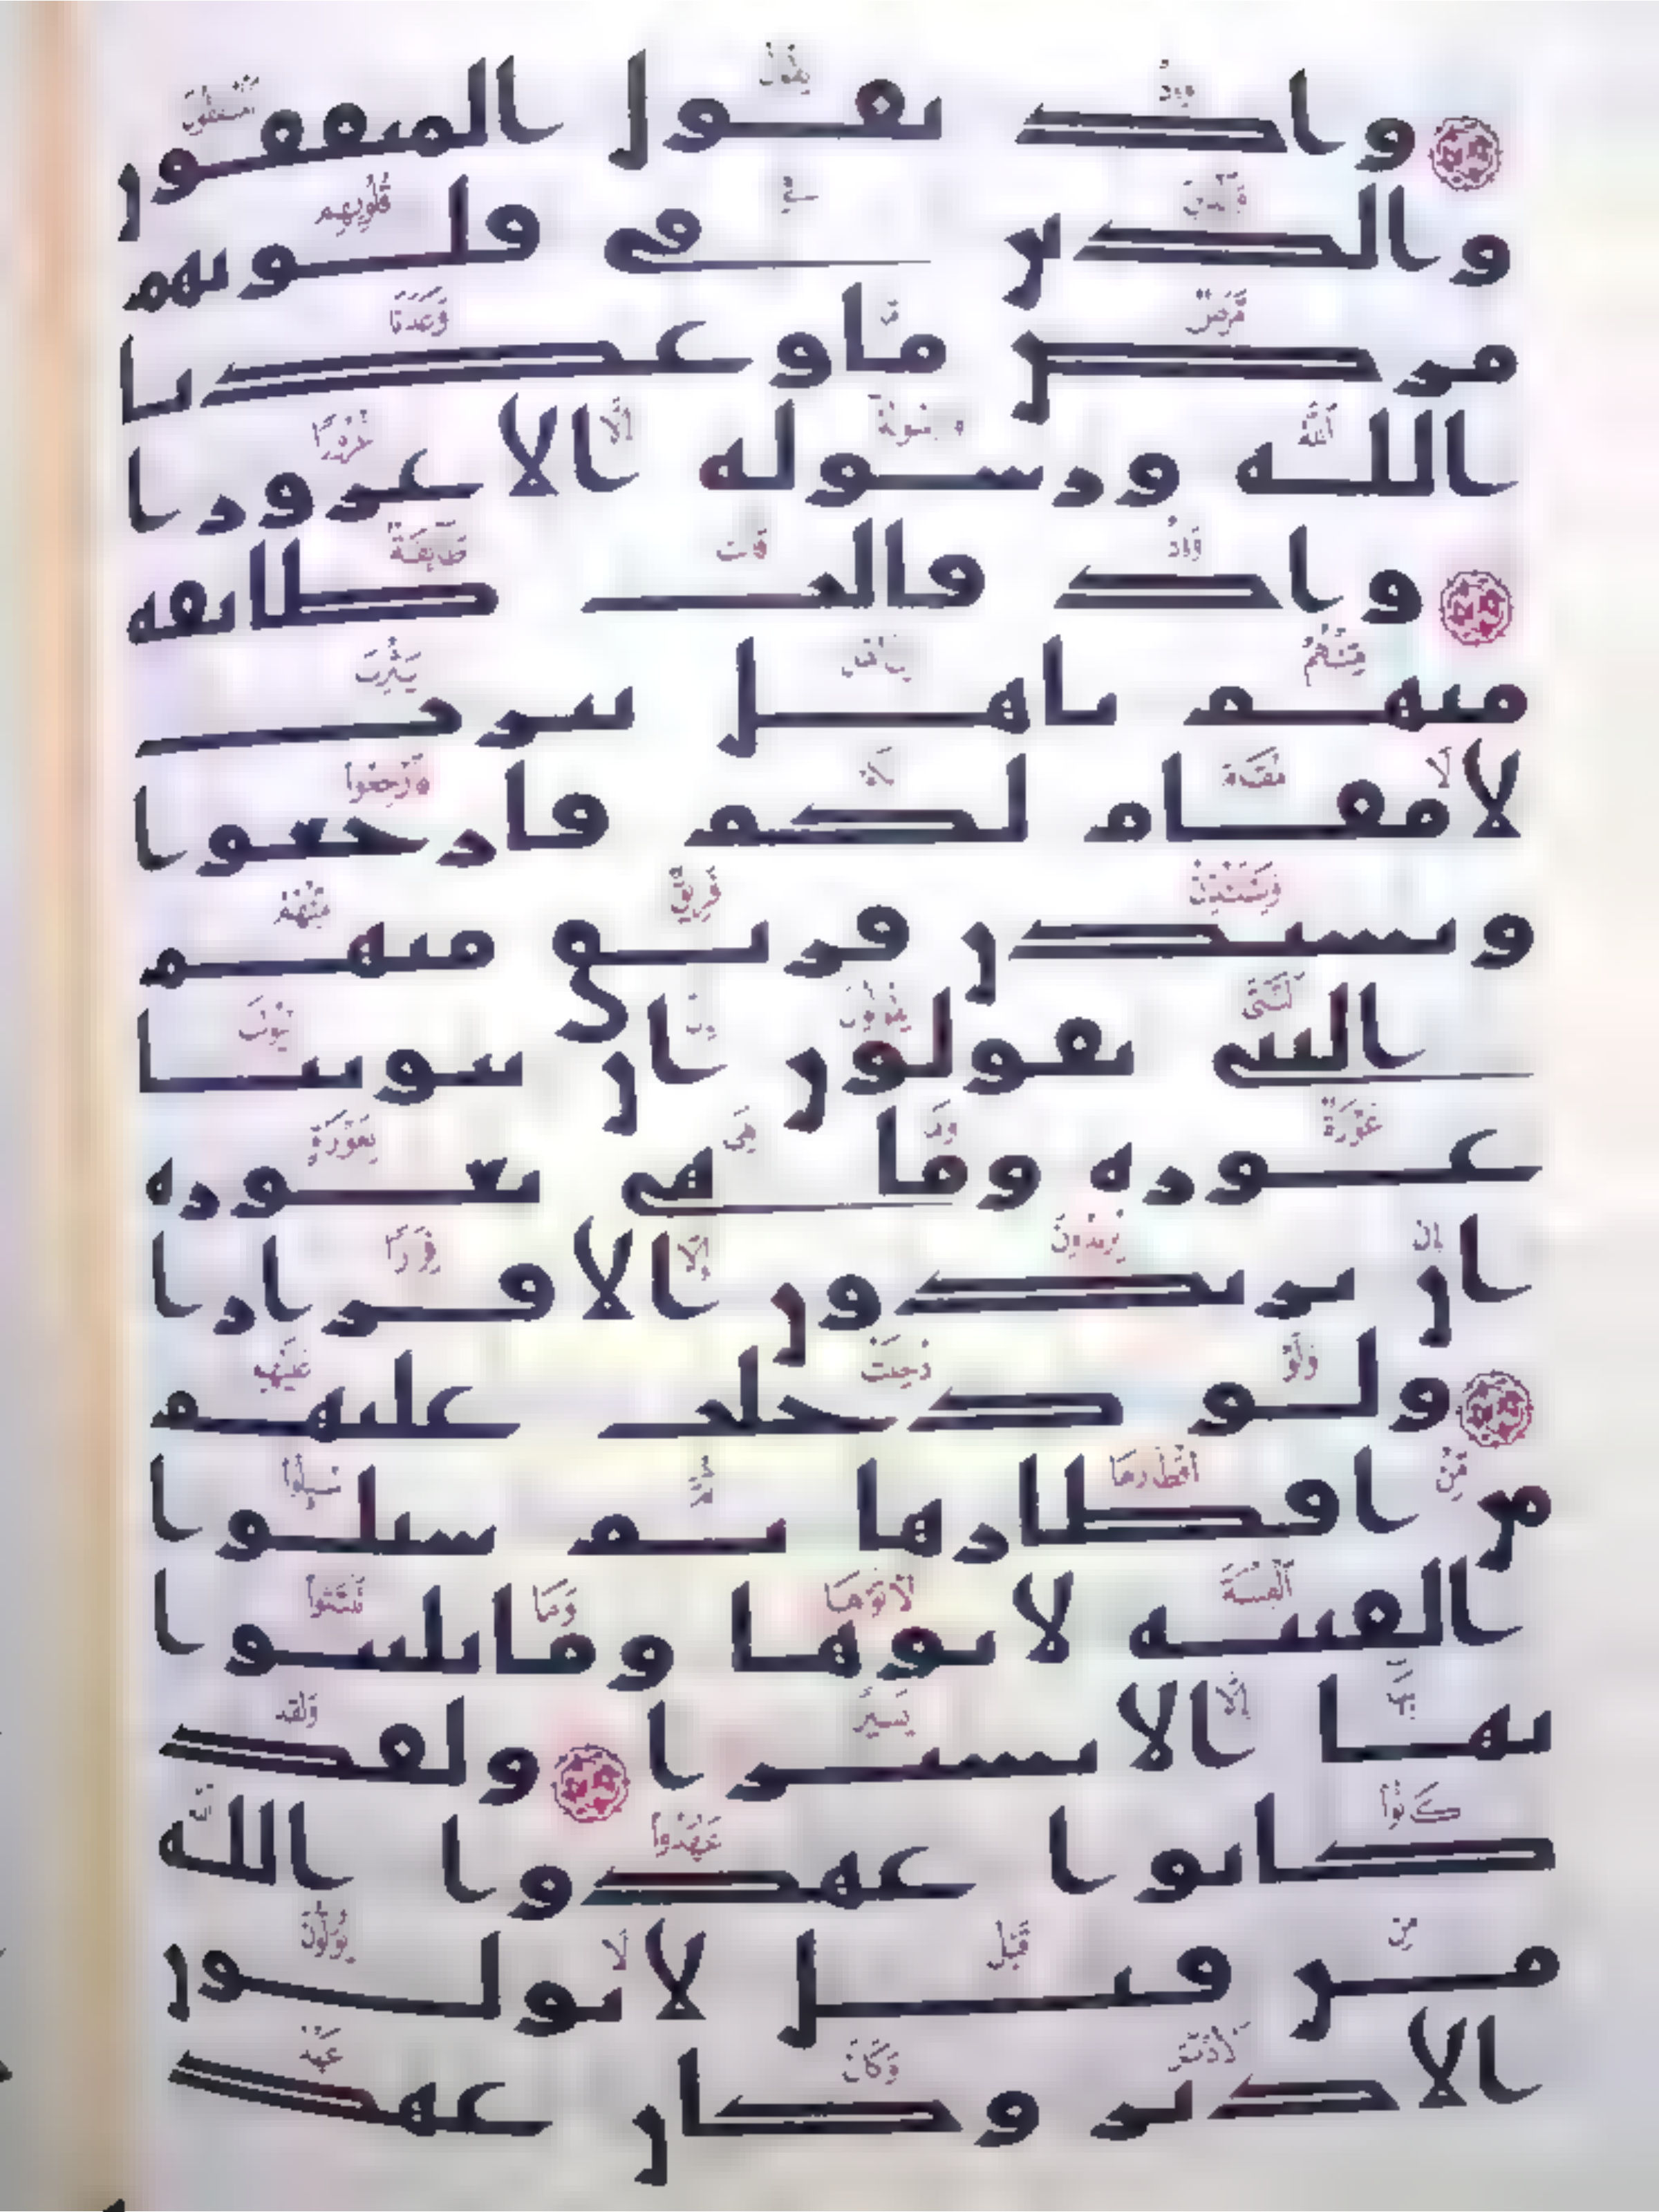 واذ يقول المنفقون
والذين في قلوبهم
مرض ما وعدنا
الله ورسوله الا غرورا
واذ قالت طائفه
منهم ياهل يثرب
لا مقام لكم فارجعوا
ويستذن فريق منهم
النبي يقولون ان بيوتنا
عوره وما هي بعوره
ان يريدون الا فرارا
ولو دخلت عليهم
من اقطارها ثم سئلوا
الفتنه لاتوها وما تلبثوا
بها الا يسيرا ولقد
كانوا عهدوا الله
من قبل لا يولون
الادبر وكان عهد